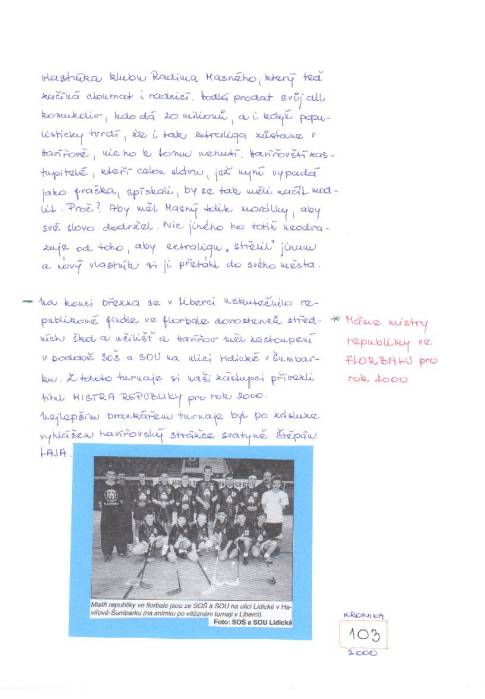 vlastníka klubu Radima Masného, který teď
začíná cloumat i radnicí. Hodlá prodat svůj díl
komukoliv, kdo dá 20 milionů, a i když popu-
listicky tvrdí, že i tak extraliga zůstane v
Havířově, nic ho k tomu nenutí. Havířovští zas-
tupitelé, kteří celou sérii, jež nyní vypadá
jako fraška, spískali, by se tak měli začít mod-
lit. Proč? Aby měl Masný tolik morálky, aby
své slovo dodržel. Nic jiného ho totiž neodra-
zuje od toho, aby extraligu „střelil" jinam
a nový vlastník si ji přetáhl do svého města.
- Na konci března se v Liberci uskutečnilo re-
publikové finále ve florbale dorostenců střed-
ních škol a učilišť a Havířov měl zastoupení
v podobě SOŠ a SOU na ulici Lidické v Šumbar-
ku. Z tohoto turnaje si naši zástupci přivezli
titul MISTRA REPUBLIKY pro rok 2000.
Nejlepším brankářem turnaje byl po zásluze
vyhlášen havířovský strážce svatyně Štěpán
LAJA.
* Máme mistry
republiky ve
FLORBALU pro
rok 2000
Mistři republiky ve florbalo jsou ze SOŠ a SOU na ulici Lidické v Ha-
vířově-Šumbarku (na snímku po vítězném turnaji v Liberci).
Foto: SOŠ a SOU Lidická
KRONIKA
103
2000